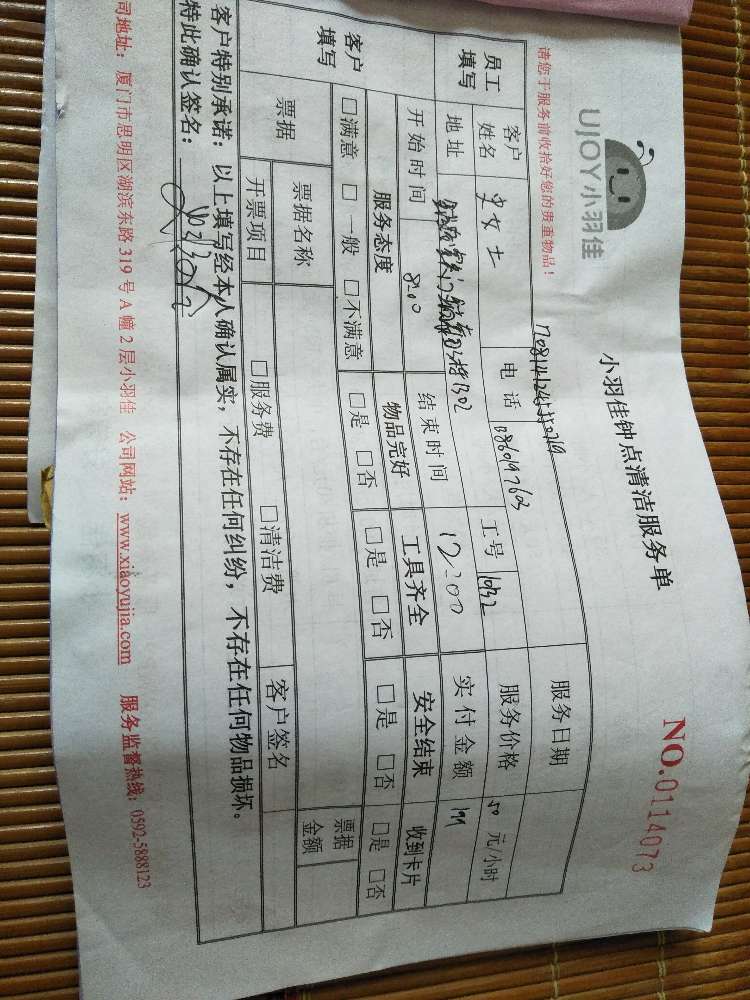 UJOY小羽佳
小羽佳钟点清洁服务单
NO.0114073
请您于服务前收拾好您的贵重物品!
员工填写
客户姓名
女士
电话
工号
1032
服务日期
服务价格
50 元/小时
地址
实付金额
199
开始时间
8:00
结束时间
12:00
客户填写
服务态度
物品完好
工具齐全
安全结束
收到卡片
□满意 □一般 □不满意
□是 □否
□是 □否
□是 □否
□是 □否
票据
票据名称
票据金额
开票项目
□服务费 □清洁费
客户签名
客户特别承诺:以上填写经本人确认属实,不存在任何纠纷,不存在任何物品损坏。
特此确认签名:
司地址:厦门市思明区湖滨东路 319 号 A 幢 2 层小羽佳 公司网站:www.xiaoyujia.com 服务监督热线:0592-5888123